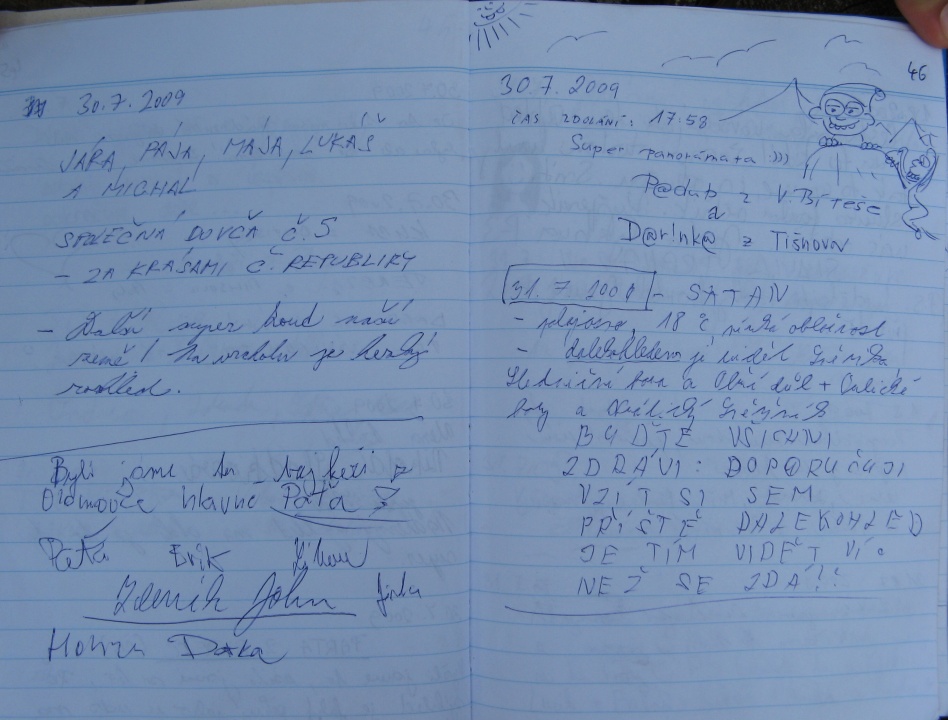 30.7.2009
JÁRA, PÁJA, MÁJA, LUKÁŠ
A MICHAL
SPOLEČNÁ DOVČA Č.5
- ZA KRÁSAMI Č. REPUBLIKY
- Další super bod naší
země! Na vrcholu je hezký
rozhled.
Byli jsme tu
Olomouce hlavně Páťa
Péťa Erik
Zdeněk John Jirka
Honza
46
30.7.2009
ČAS ZDOLÁNÍ: 17:58
Super panorámata :)))
P@dub z V. Bíteše
a
D@rink@ z Tišnova
31.7 2009 - SATAN
18°C oblačnost
- dalekohledem je vidět Sněžka
boudu a Obří důl +
boudy a Králický Sněžník
BUĎTE VŠICHNI
ZDRÁVI: DOPORUČUJI
VZÍT SI SEM
PŘÍŠTĚ DALEKOHLED
JE TÍM VIDĚT VÍC
NEŽ SE ZDÁ!!